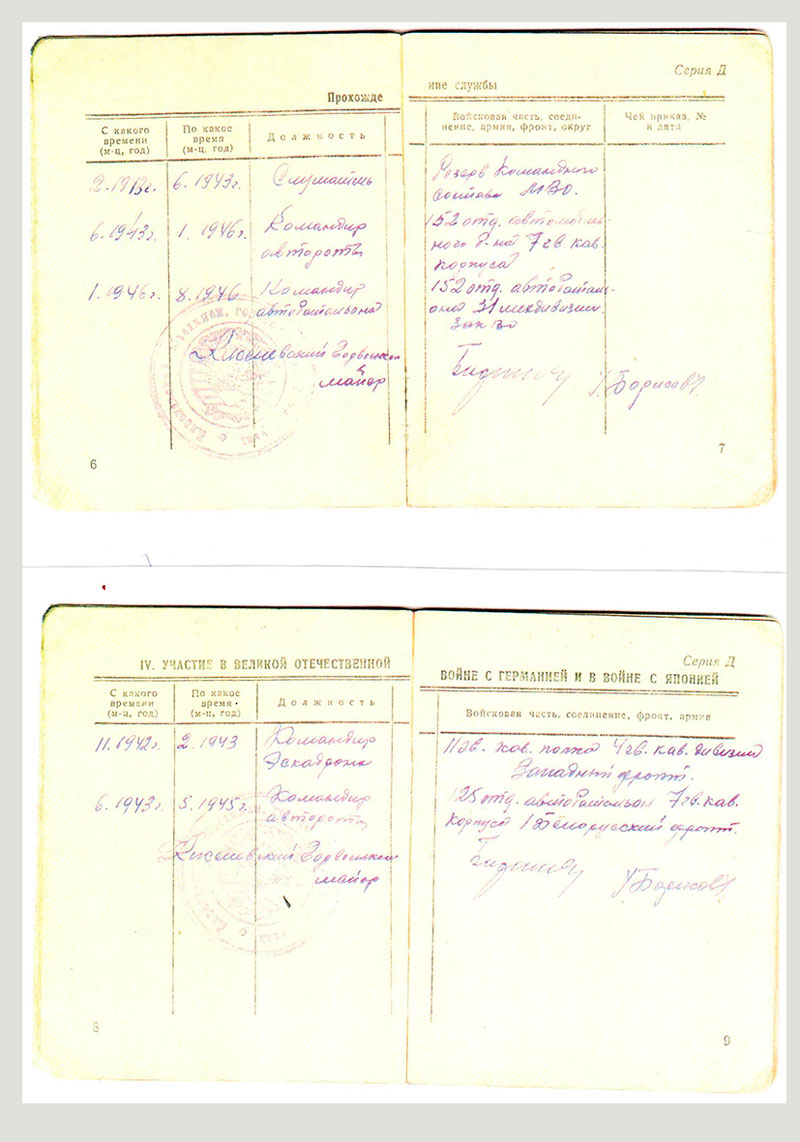 Серия Д
Прохожде
ние службы
С какого времени (м-ц, год)
По какое время (м-ц, год)
Должность
Войсковая часть, соеди-
нение, армия, фронт, округ
Чей приказ, №
и дата
2.1943г. 6.1943г. Слушатель
Резерв Командного
состава МВО.
6.1943г. 1.1946г. Командир
автороты
152 отд. автомобиль-
ного б-на 7 гв кав.
корпуса
1.1946г. 8.1946 Командир
автобатальона
152 отд. автобаталь-
она 31 мехдивизии
ЗакВо
майор
Борисов
6
7
Серия Д
IV. УЧАСТИЕ В ВЕЛИКОЙ ОТЕЧЕСТВЕННОЙ
ВОЙНЕ С ГЕРМАНИЕЙ И В ВОЙНЕ С ЯПОНИЕЙ
С какого времени (м-ц, год)
По какое время (м-ц, год)
Должность
Войсковая часть, соединение, фронт, армия
11.1942г. 2.1943 Командир
Эскадрона
11 гв. кав. полка 4 гв. кав. дивизии
Западный фронт.
6.1943г. 5.1945г. Командир
автороты
125 отд. автобатальон 7 гв. кав.
корпуса 1 Белорусский фронт.
майор
Борисов
8
9